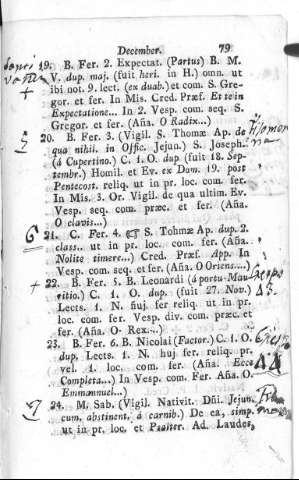 December. 79
19. B. Fer. 2. Expectat. (Partus) B. M.
V. dup. maj. (fuit heri. in H.) omn. ut
ibi not. 9. lect. (ex duab.) et com. S. Gre-
gor. et fer. In Mis. Cred. Præf. Et te in
Expectatione... In 2. Vesp. com. seq. S.
Gregor. et fer. (Aña. O Radix...)
20. B. Fer. 3. (Vigil. S. Thomæ Ap. de
qua nihil. in Offic. Jejun.) S. Joseph.
(á Cupertino.) C. 1. O. dup (fuit 18. Sep-
tembr.) Homil. et Ev. ex Dom. 19. post
Pentecost. reliq. ut in pr. loc. com. fer.
In Mis. 3. Or. Vigil. de qua ultim. Ev.
Vesp. seq. com. præc. et fer. (Aña.
O clavis...)
6 21. C. Fer. 4. S. Tohmæ Ap. dup. 2.
class.. ut in pr. loc. com. fer. (Aña.
Nolite timere...) Cred. Præf. App. In
Vesp. com. seq. et fer. (Aña. O Oriens...)
+ 22. B. Fer. 5. B. Leonardi (á portu-Mau-
ritio.) C. 1. O. dup. (fuit 27. Nov.)
Lects. 1. N. huj. fer reliq. ut in pr.
loc. com. fer. Vesp. div. com. præc. et
fer. (Aña. O- Rex...)
23. B. Fer. 6. B. Nicolai (Factor.) C. 1. O.
dup. Lects. 1. N. huj fer. reliq. pr.
vel. 1. loc. com. fer. (Aña. Ecce
Completa...) In Vesp. com. Fer. Aña. O-
Emmanuel...)
24. M. Sab. (Vigil. Nativit. Dñi. Jejun.
cum. abstinent. á carnib.) De ea, simp.
ut in pr. loc. et Psalter. Ad. Laudes,